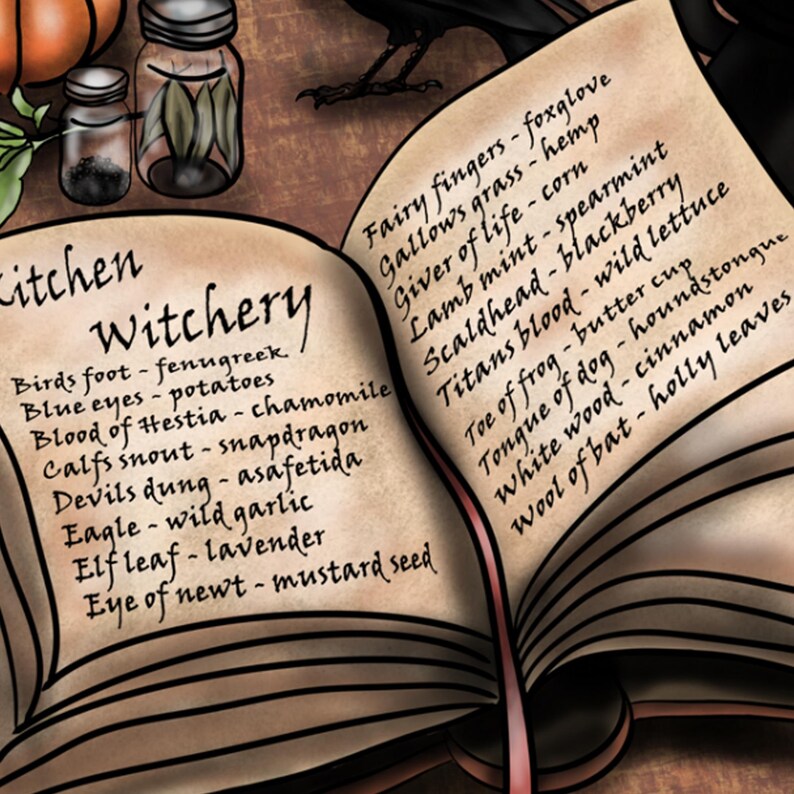 Kitchen
Witchery
Birds foot - fenugreek
Blue eyes - potatoes
Blood of Hestia - chamomile
Calfs snout - snapdragon
Devils dung - asafetida
Eagle - wild garlic
Elf leaf - lavender
Eye of newt - mustard seed
Fairy fingers - foxglove
Gallows grass - hemp
Giver of life - corn
Lamb mint - spearmint
Scaldhead - blackberry
Titans blood - wild lettuce
Toe of frog - butter cup
Tongue of dog - houndstongue
White wood - cinnamon
Wool of bat - holly leaves